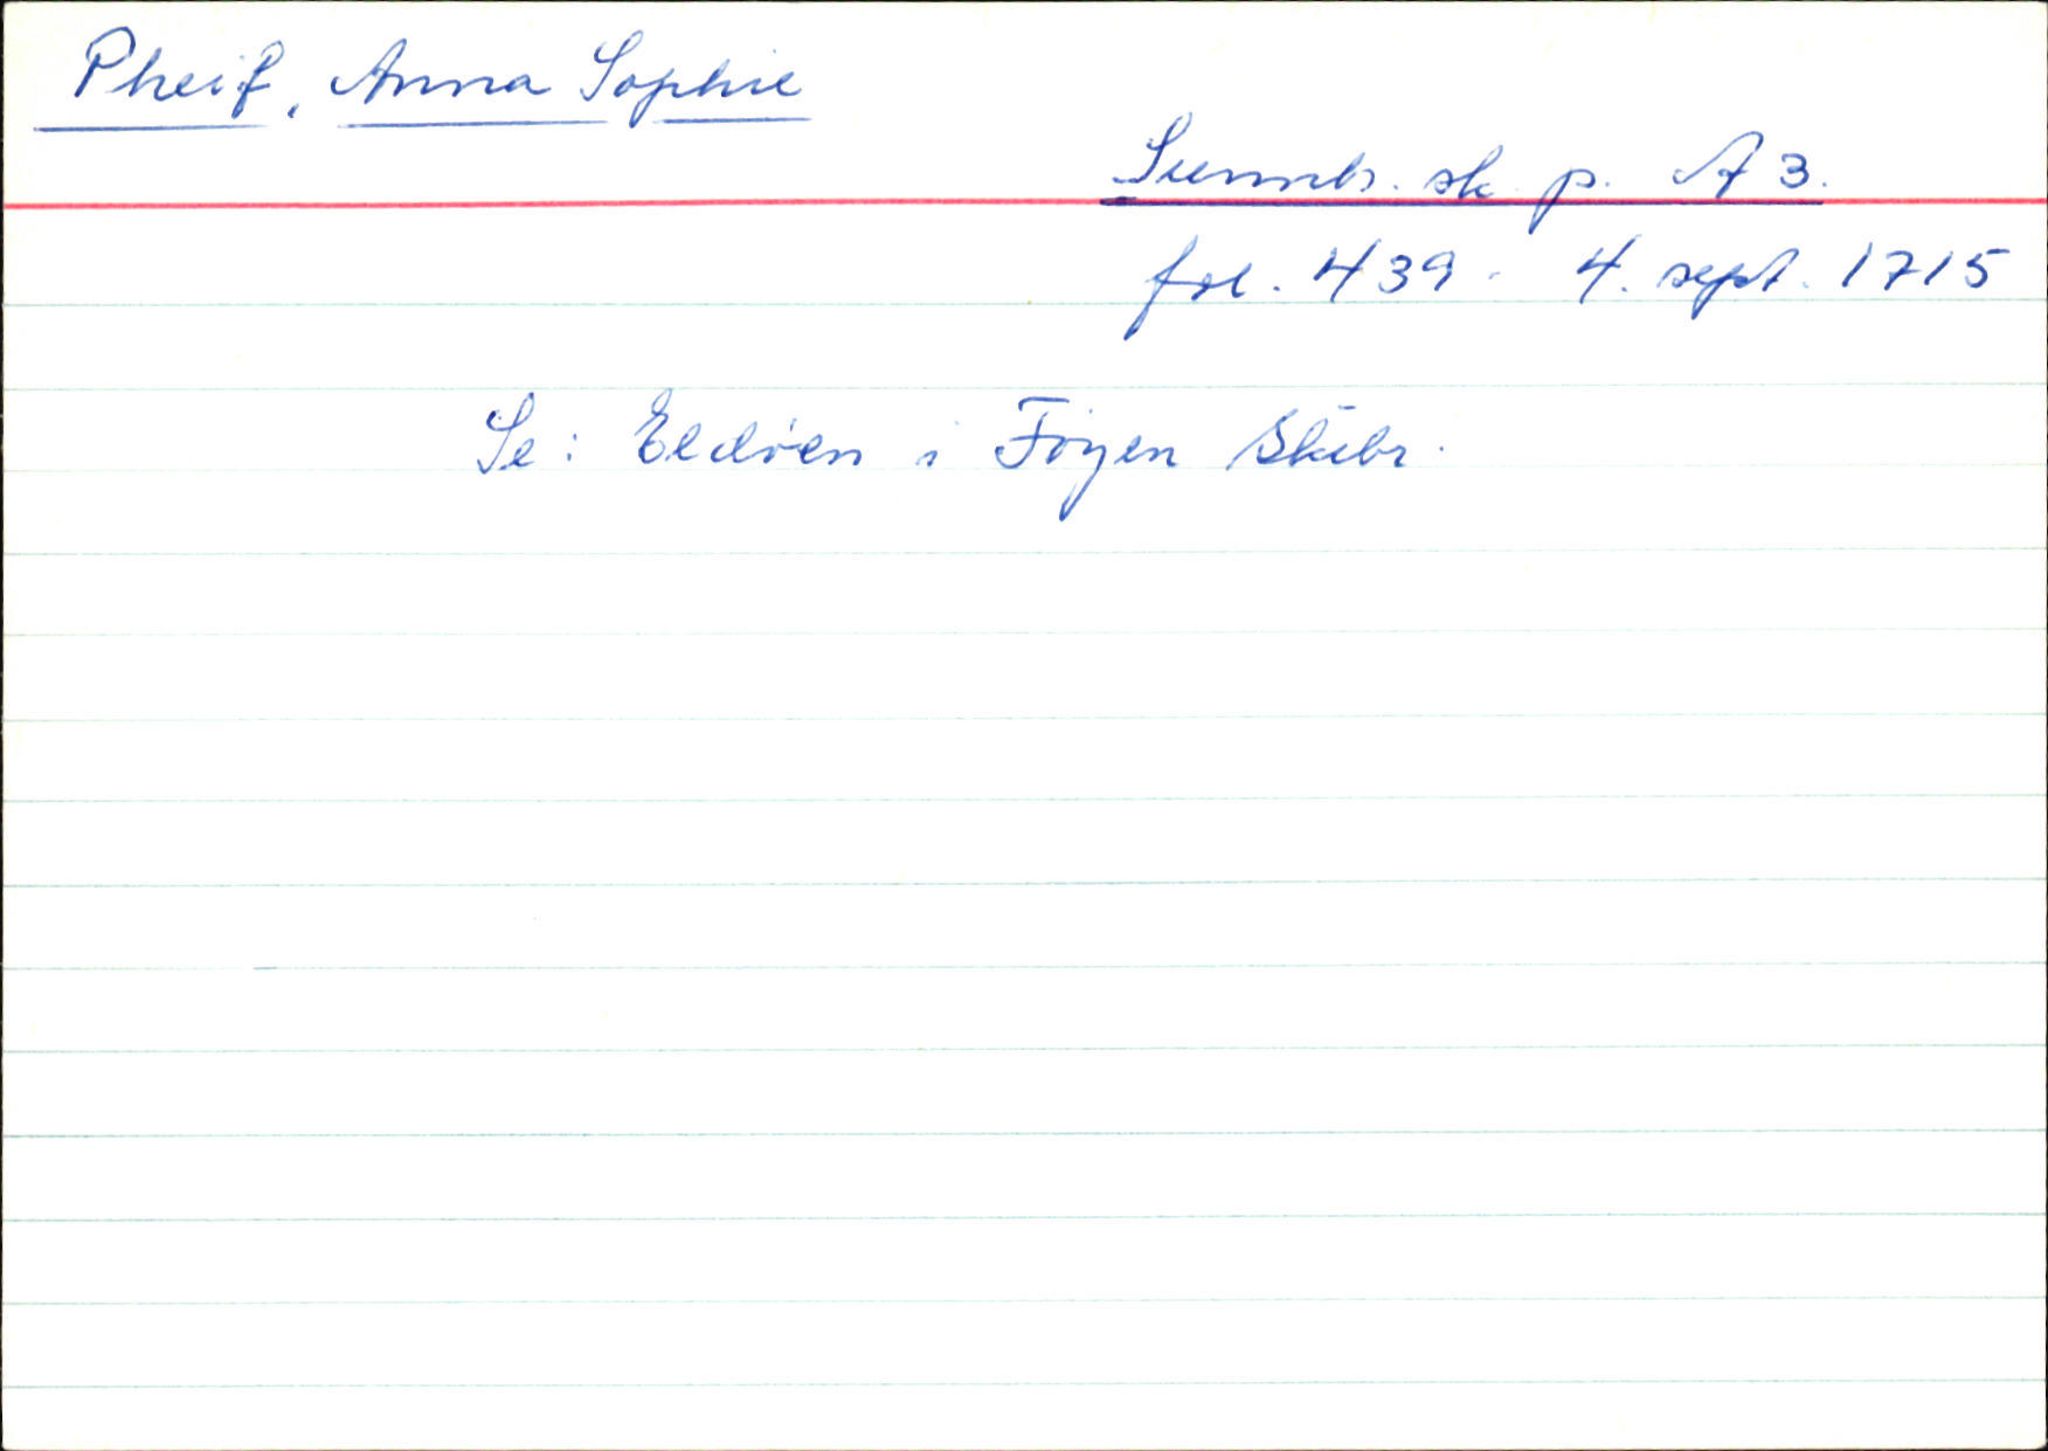 Pheif, Anna Sophie
Sunnh. sk. p. A 3.
fol. 439. 4. sept. 1715
Se: Eldøen i Föyen Skibr.